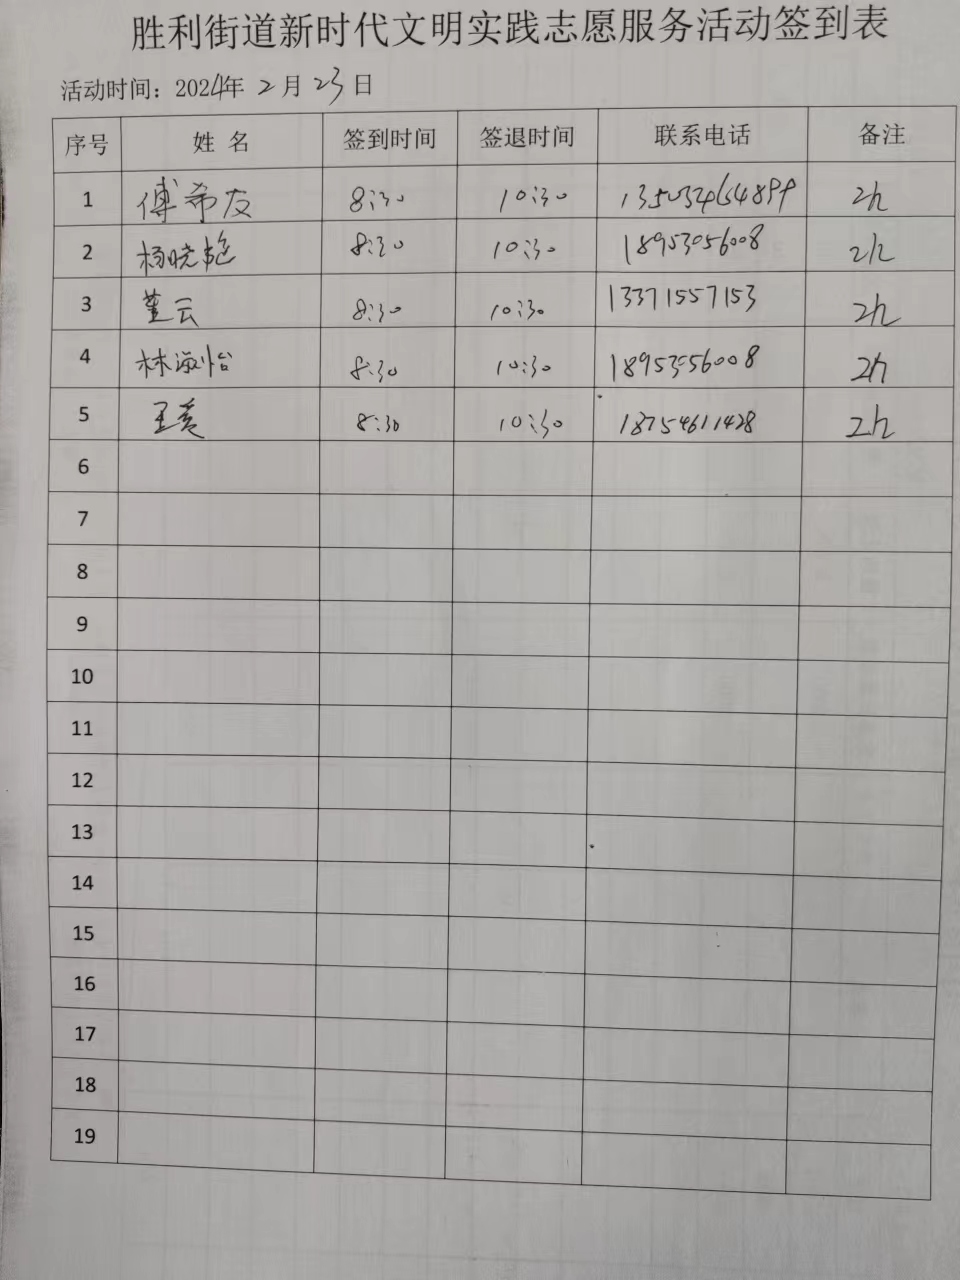 胜利街道新时代文明实践志愿服务活动签到表
活动时间：2024年 2 月 23 日
序号 姓 名 签到时间 签退时间 联系电话 备注
1 傅希友 8:30 10:30 2h
2 杨晓艳 8:30 10:30 18953056008 2h
3 董云 8:30 10:30 13371557153 2h
4 林淑怡 8:30 10:30 2h
5 8:30 10:30 18754611428 2h
6
7
8
9
10
11
12
13
14
15
16
17
18
19